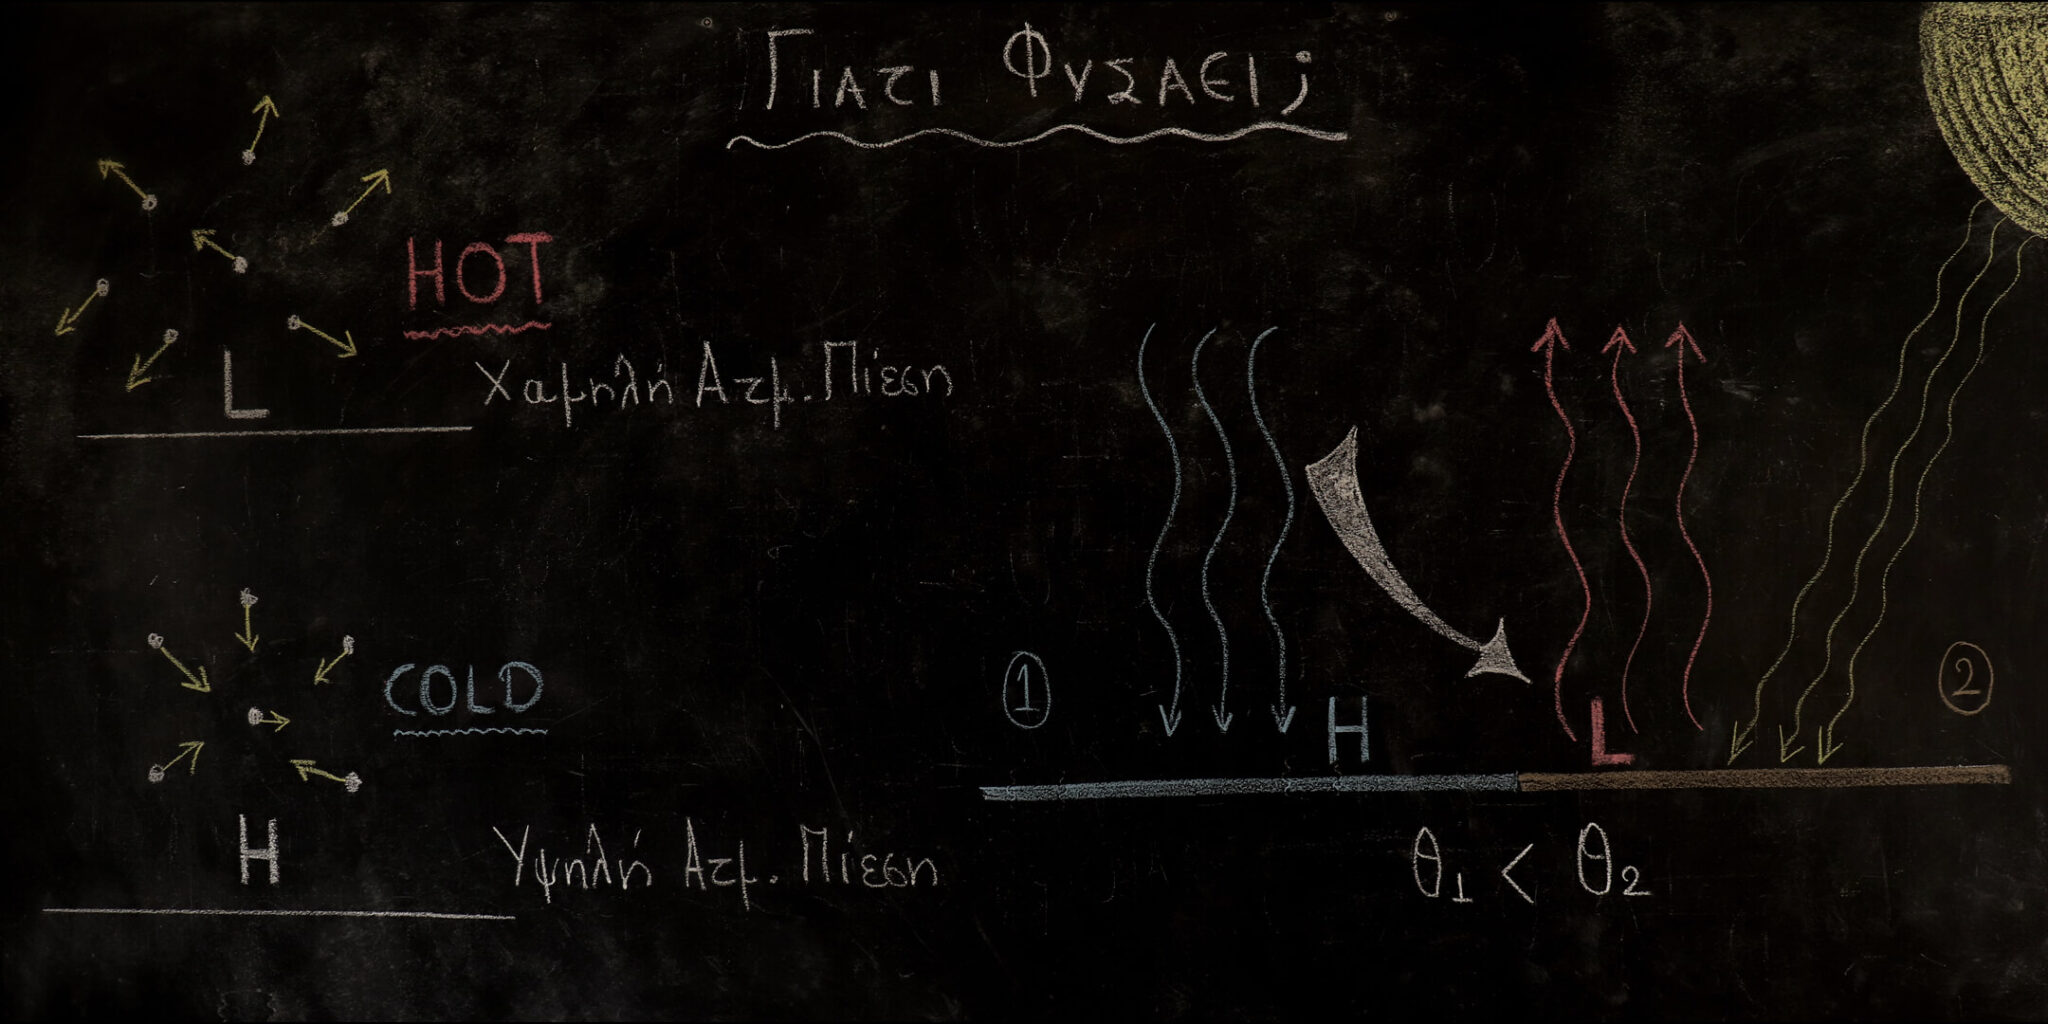 Γιατι Φυσαει;
HOT
L
Χαμηλή Ατμ. Πίεση
COLD
H
Υψηλή Ατμ. Πίεση
1
H
L
2
θ1 < θ2